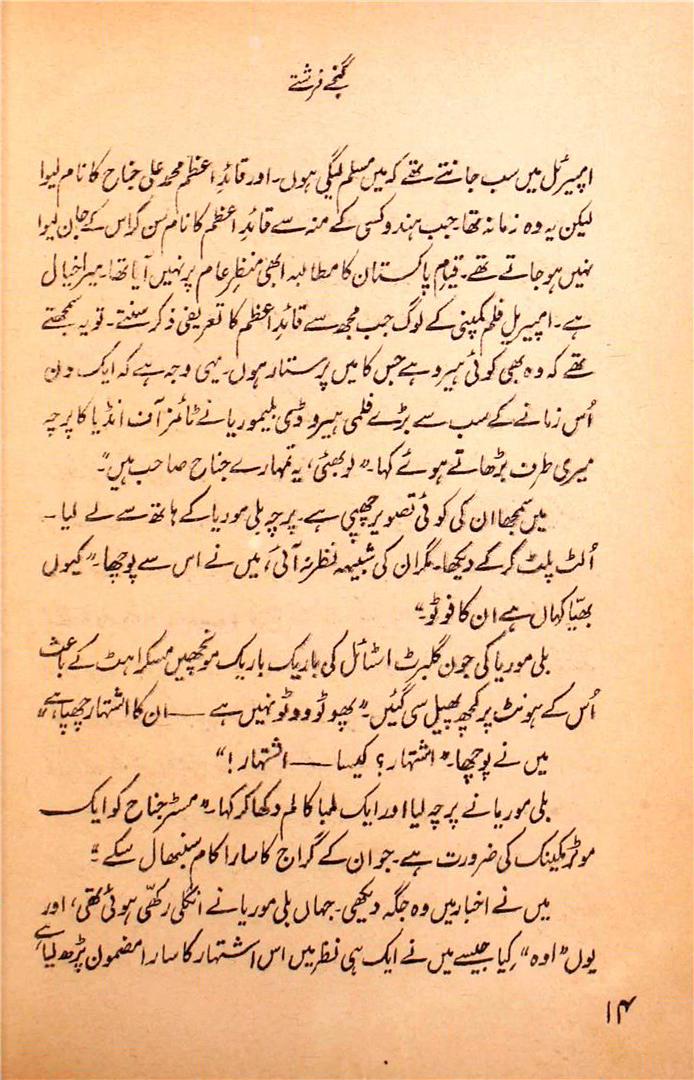 گنجے فرشتے
امپیریل میں سب جانتے تھے کہ میں مسلم لیگی ہوں۔ اور قائدِ اعظم محمد علی جناح کا نام لیوا
لیکن یہ وہ زمانہ تھا۔ جب ہندو کسی کے منہ سے قائدِ اعظم کا نام سن کر اس کے جان لیوا
نہیں ہو جاتے تھے۔ قیامِ پاکستان کا مطالبہ ابھی منظرِ عام پر نہیں آیا تھا۔ میرا خیال
ہے۔ امپیریل فلم کمپنی کے لوگ جب مجھ سے قائدِ اعظم کا تعریفی ذکر سنتے۔ تو یہ سمجھتے
تھے کہ وہ بھی کوئی ہیرو ہے جس کا میں پرستار ہوں۔ یہی وجہ ہے کہ ایک دن
اُس زمانے کے سب سے بڑے فلمی ہیرو ڈی بلیموریا نے ٹائمز آف انڈیا کا پرچہ
میری طرف بڑھاتے ہوئے کہا۔ "لو بھئی، یہ تمہارے جناح صاحب ہیں"۔
میں سمجھا ان کی کوئی تصویر چھپی ہے۔ پرچہ بلی موریا کے ہاتھ سے لے لیا۔
اُلٹ پلٹ کر کے دیکھا۔ مگر ان کی شبیہہ نظر نہ آئی، میں نے اس سے پوچھا۔ "کیوں
بھیّا کہاں ہے ان کا فوٹو۔"
بلی موریا کی جون گلبرٹ اسٹائل کی باریک باریک مونچھیں مسکراہٹ کے باعث
اُس کے ہونٹ پر کچھ پھیل سی گئیں۔ "پھوٹو ووٹو نہیں ہے — ان کا اشتہار چھپا ہے"
میں نے پوچھا۔ "اشتہار؟ کیسا — اشتہار!"
بلی موریا نے پرچہ لیا اور ایک لمبا کالم دکھا کر کہا۔ "مسٹر جناح کو ایک
موٹر مکینک کی ضرورت ہے۔ جو ان کے گراج کا سارا کام سنبھال سکے"۔
میں نے اخبار میں وہ جگہ دیکھی۔ جہاں بلی موریا نے انگلی رکھّی ہوئی تھی، اور
یوں "اوہ" کیا جیسے میں نے ایک ہی نظر میں اس اشتہار کا سارا مضمون پڑھ لیا ہے،
۱۴